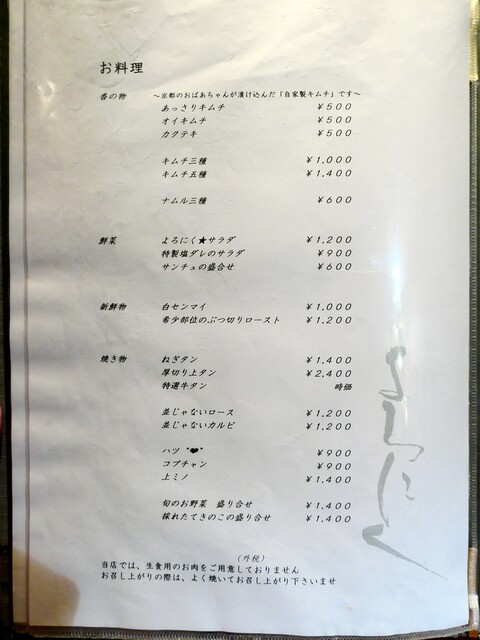 お料理
香の物 ～京都のおばあちゃんが漬け込んだ「自家製キムチ」です～
あっさりキムチ ¥500
オイキムチ ¥500
カクテキ ¥500
キムチ三種 ¥1,000
キムチ五種 ¥1,400
ナムル三種 ¥600
鮮菜 よろにく★サラダ ¥1,200
特製塩ダレのサラダ ¥900
サンチュの盛合せ ¥600
新鮮物 白センマイ ¥1,000
希少部位のぶつ切りロースト ¥1,200
焼き物 ねぎタン ¥1,400
厚切り上タン ¥2,400
特選牛タン 時価
並じゃないロース ¥1,200
並じゃないカルビ ¥1,200
ハツ "❤" ¥900
コプチャン ¥900
上ミノ ¥1,400
旬のお野菜 盛り合せ ¥1,400
採れたてきのこの盛り合せ ¥1,400
(外税)
当店では、生食用のお肉をご用意しておりません
お召し上がりの際は、よく焼いてお召し上がり下さいませ
よろにく